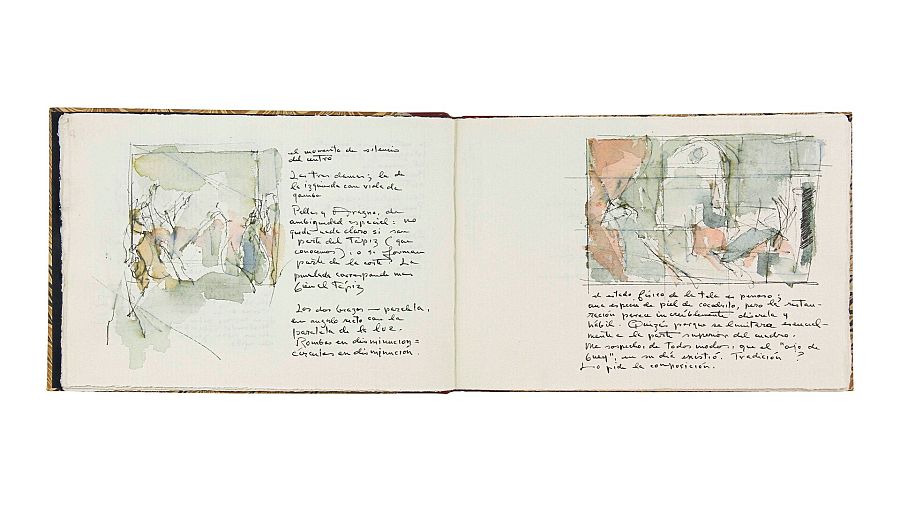 el momento de silencio
del centro
Las tres damas; la de
la izquierda con viola de
gamba
Pallas y Aragne, de
ambigüedad espacial: no
queda nada claro si son
parte del Tapiz (que
conocemos), o si forman
parte de la corte. La
pincelada corresponde mas
bien al Tapiz
Los dos brazos — paralela,
en angulo recto con la
paralela de la luz.
Bombas en disminucion =
en disminucion.
el estado físico de la tela es penoso;
una especie de piel de cocodrilo, pero la restau-
ración parece increiblemente discreta y
hábil. Quizás porque se limitara esencial-
mente a la parte superior del cuadro.
Me sospecho, de todos modos, que el "ojo de
buey", en su día existió. Tradición?
Lo pide la composición.